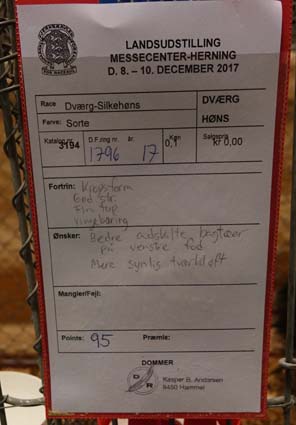 LANDSUDSTILLING
MESSECENTER-HERNING
D. 8. – 10. DECEMBER 2017
Race Dværg-Silkehøns
DVÆRG
HØNS
Farve: Sorte
Katalog nr. 3194
D.F.ring nr. 1796
år. 17
Køn 0,1
Salgspris kr 0,00
Fortrin: Kropsform
God str.
Fin top
vingebæring
Ønsker: Bedre adskilte bagtæer
på venstre fod
Mere synlig tværkløft
Mangler/Fejl:
Points: 95
Præmie:
DOMMER
DR
Kasper B. Andersen
8450 Hammel